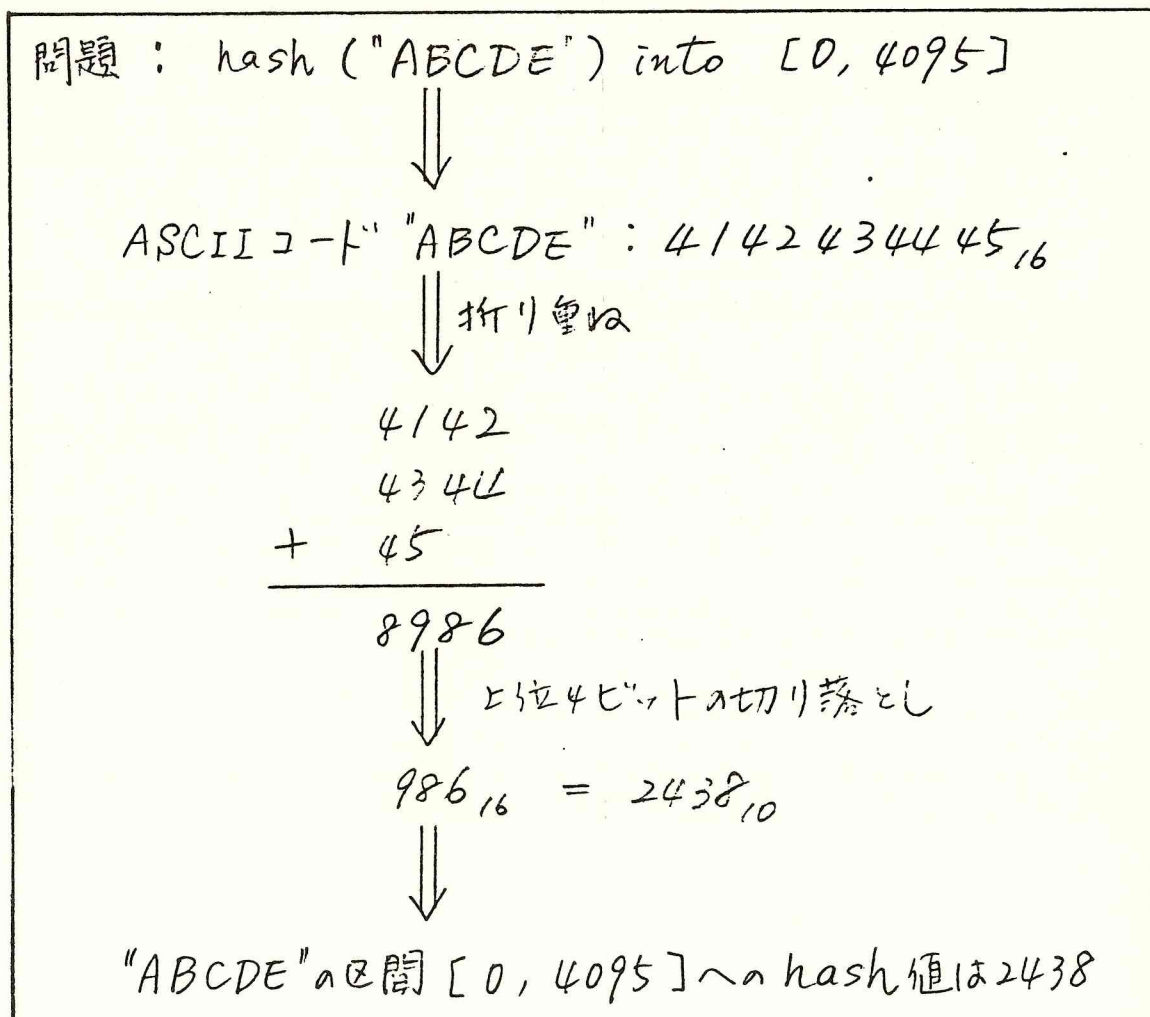 問題 : hash ("ABCDE") into [0, 4095]
ASCIIコード "ABCDE" : 4142434445₁₆
折り重ね
4142
4344
+ 45
8986
上位4ビットの切り落とし
986₁₆ = 2438₁₀
"ABCDE"の区間 [0, 4095]へのhash値は2438